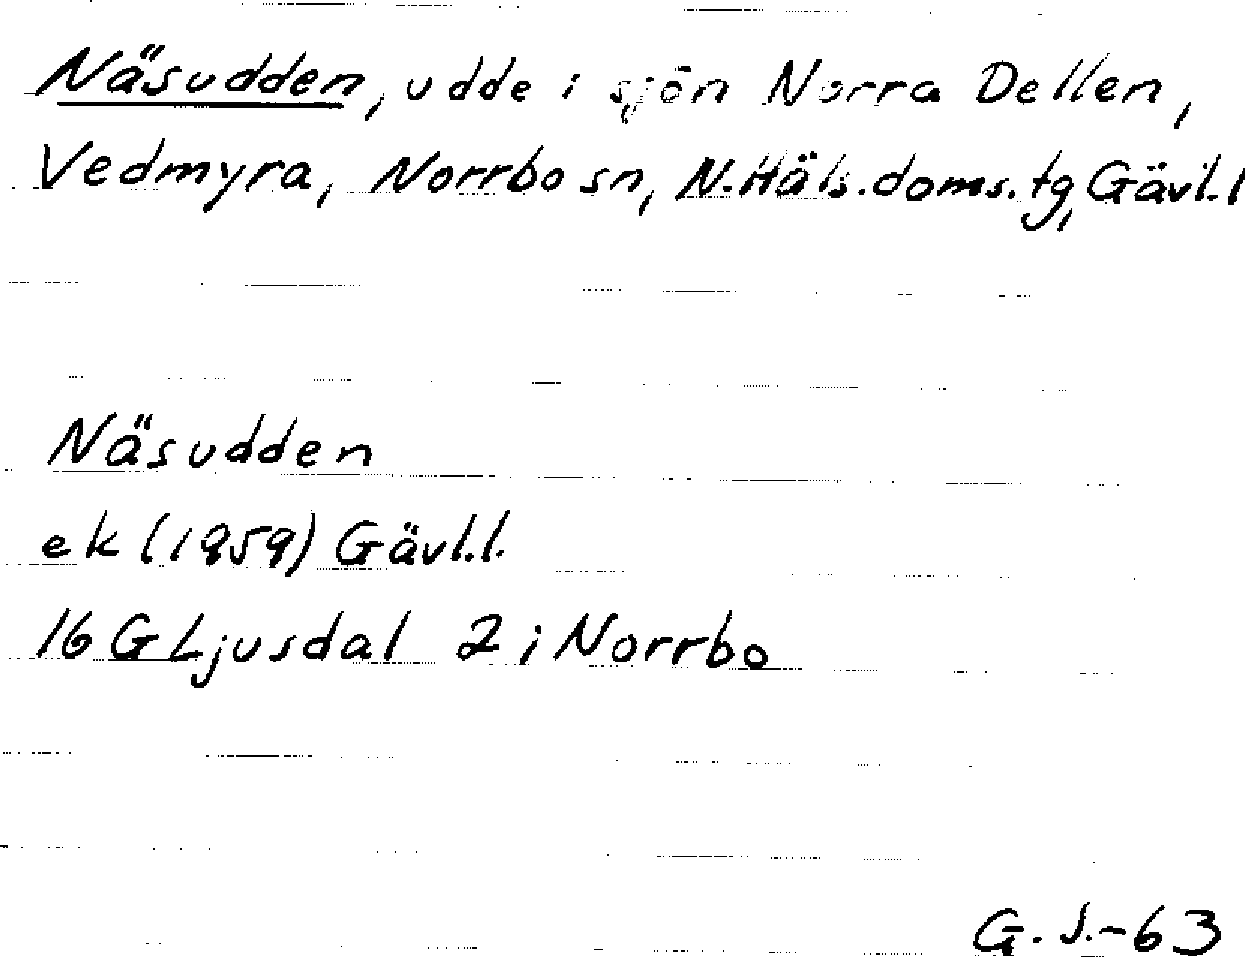 Näsudden, udde i sjön Norra Dellen,
Vedmyra, Norrbo sn, N.Häls.doms.tg, Gävl.l
Näsudden
ek (1959) Gävl.l.
16 G Ljusdal 2 i Norrbo
G. J.-63